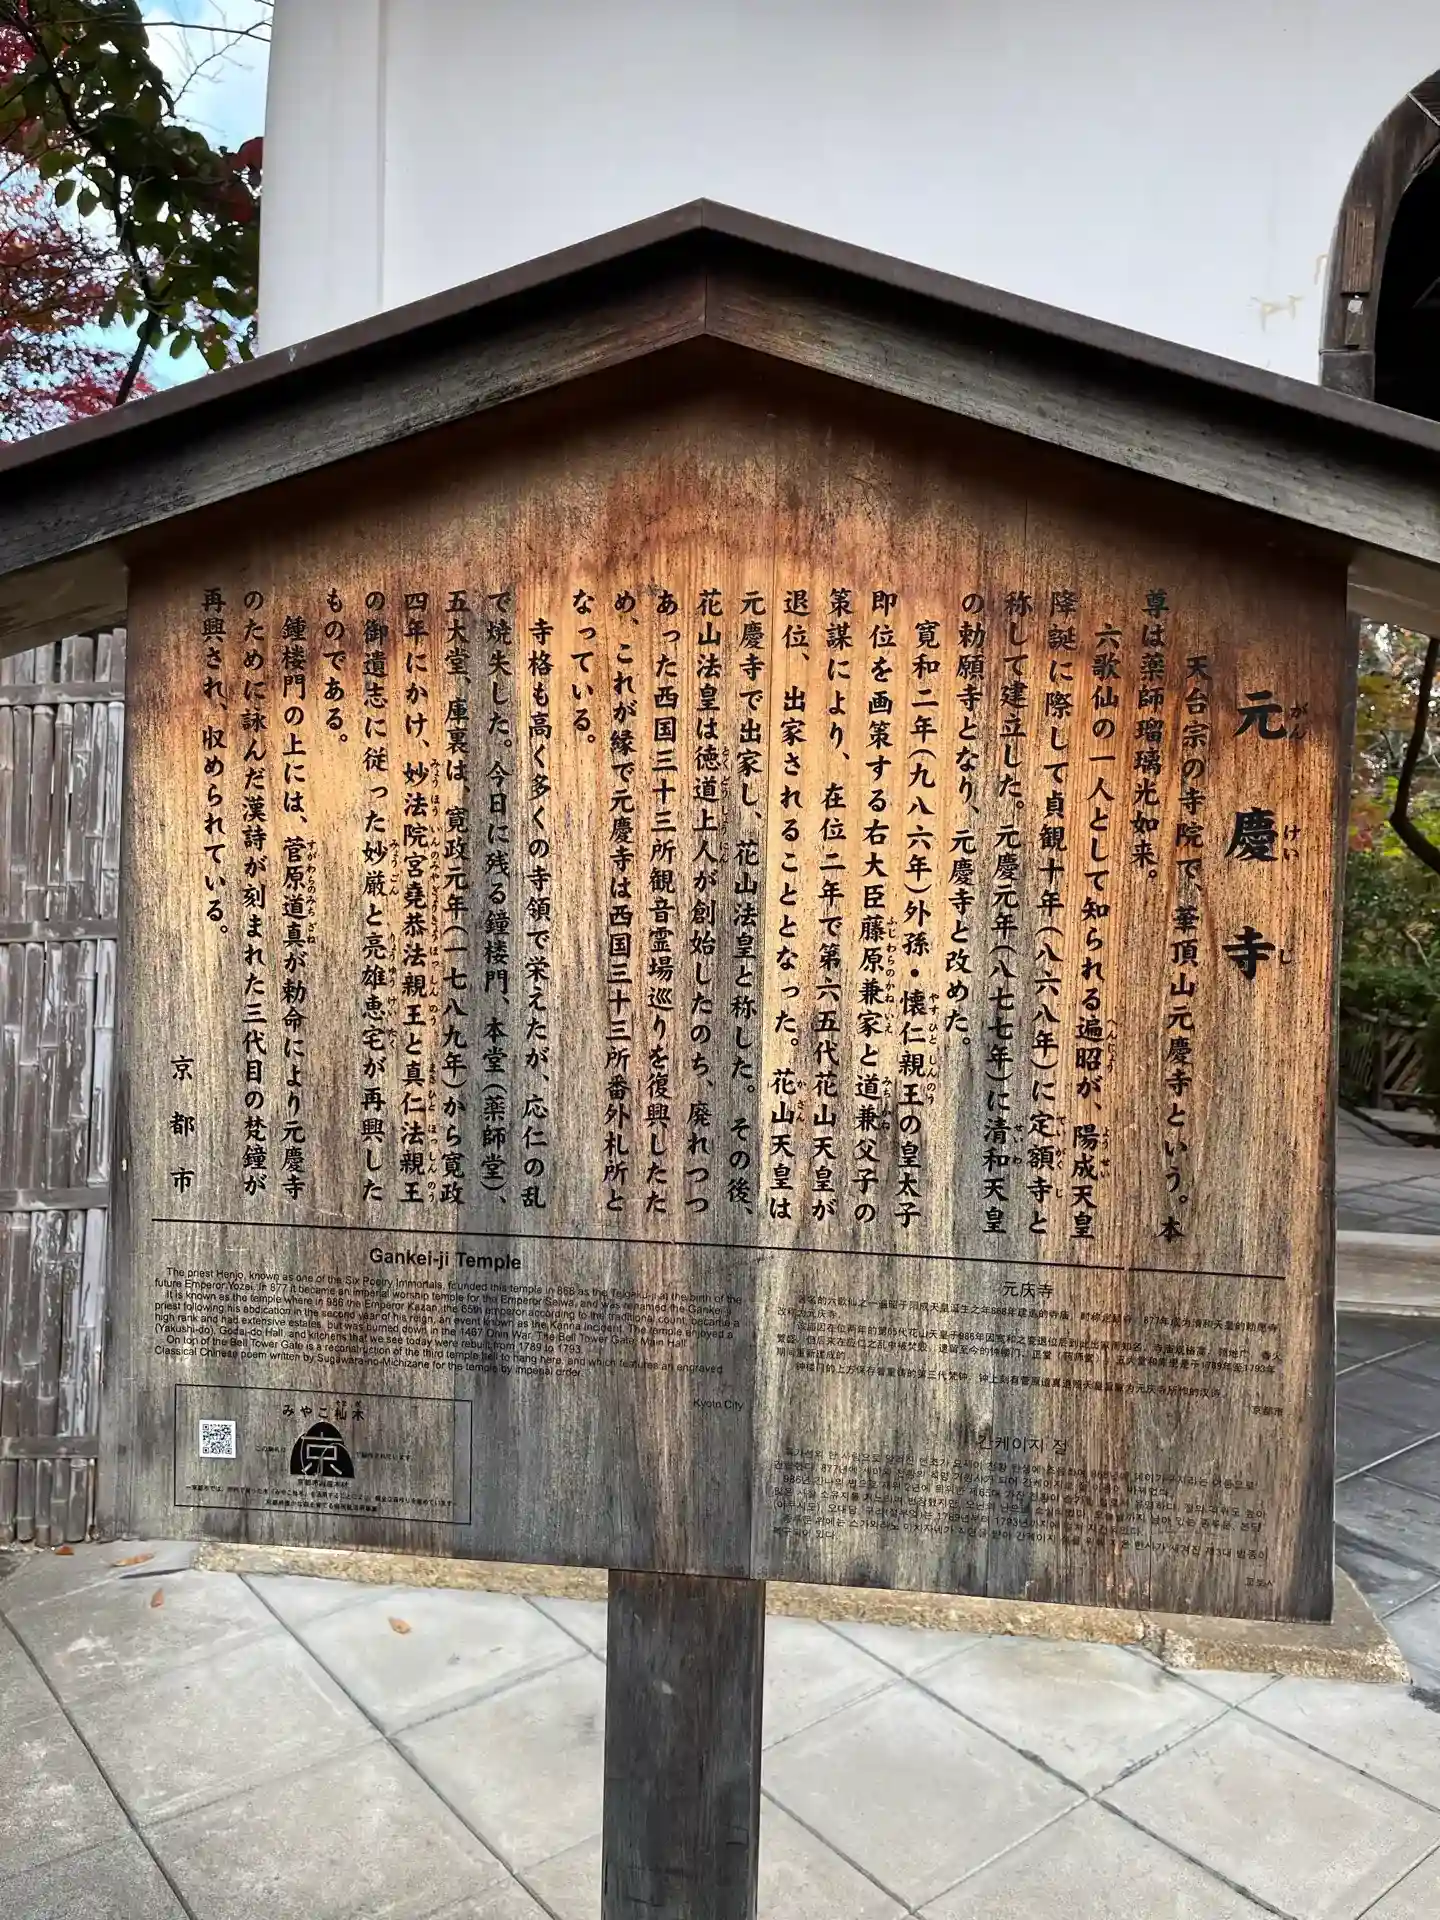 元慶寺
天台宗の寺院で、華頂山元慶寺という。本
尊は薬師瑠璃光如来。
六歌仙の一人として知られる遍昭が、陽成天皇
降誕に際して貞観十年（八六八年）に定額寺と
称して建立した。元慶元年（八七七年）に清和天皇
の勅願寺となり、元慶寺と改めた。
寛和二年（九八六年）外孫・懐仁親王の皇太子
即位を画策する右大臣藤原兼家と道兼父子の
策謀により、在位二年で第六五代花山天皇が
退位、出家されることとなった。花山天皇は
元慶寺で出家し、花山法皇と称した。その後、
花山法皇は徳道上人が創始したのち、廃れつつ
あった西国三十三所観音霊場巡りを復興したた
め、これが縁で元慶寺は西国三十三所番外札所と
なっている。
寺格も高く多くの寺領で栄えたが、応仁の乱
で焼失した。今日に残る鐘楼門、本堂（薬師堂）、
五大堂、庫裏は、寛政元年（一七八九年）から寛政
四年にかけ、妙法院宮堯恭法親王と真仁法親王
の御遺志に従った妙厳と亮雄恵宅が再興した
ものである。
鐘楼門の上には、菅原道真が勅命により元慶寺
のために詠んだ漢詩が刻まれた三代目の梵鐘が
再興され、収められている。
京都市
Gankei-ji Temple
The priest Henjo, known as one of the Six Poetry Immortals, founded this temple in 868 as the Teigaku-ji at the birth of the
future Emperor Yozei. In 877 it became an imperial worship temple for the Emperor Seiwa, and was renamed the Gankei-ji.
It is known as the temple where in 986 the Emperor Kazan, the 65th emperor according to the traditional count, became a
priest following his abdication in the second year of his reign, an event known as the Kanna Incident. The temple enjoyed a
high rank and had extensive estates, but was burned down in the 1467 Onin War. The Bell Tower Gate, Main Hall
(Yakushi-do), Godai-do Hall, and kitchens that we see today were rebuilt from 1789 to 1793.
On top of the Bell Tower Gate is a reconstruction of the third temple bell to hang here, and which features an engraved
Classical Chinese poem written by Sugawara-no-Michizane for the temple by imperial order.
Kyoto City
元庆寺
京都市
간케이지 절
교토시
みやこ杣木
京